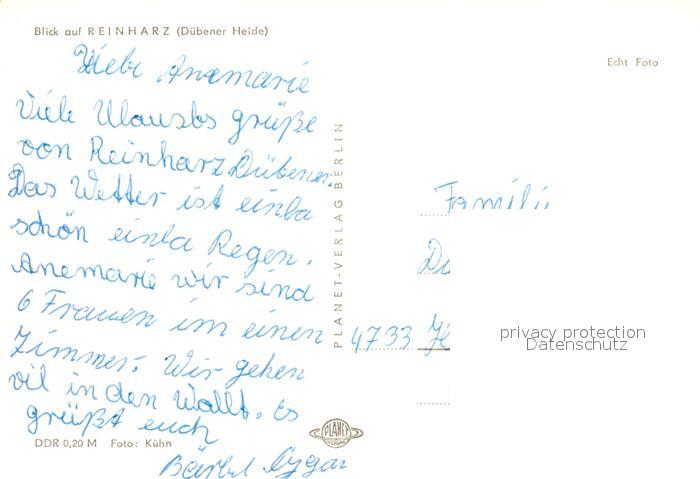 Blick auf REINHARZ (Dübener Heide)
Echt Foto
Liebe Anemarie
Viele Ulausbs grüße
von Reinharz Dübener.
Das Wetter ist einba
schön einba Regen.
Anemarie wir sind
6 Frauen im einen
Zimmer. Wir gehen
vil in den Wallt. Es
grüßt euch
Bärbel
PLANET-VERLAG BERLIN
Famili
4733
privacy protection
Datenschutz
PLANET
DDR 0,20 M Foto: Kühn